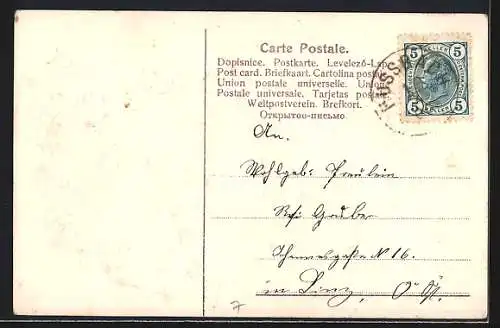 Carte Postale.
Dopisnice. Postkarte. Levelező-Lap
Post card. Briefkaart. Cartolina postale
Union postale universelle. Union
Postale universale. Tarjetas postal
Weltpostverein. Brefkort.
Открытое-письмо
5 HELLER 5
5 HELLER 5
An.
Wohlgeb: Fräulein
Resi Gruber
N 16.
in Linz, O. Öst.
7